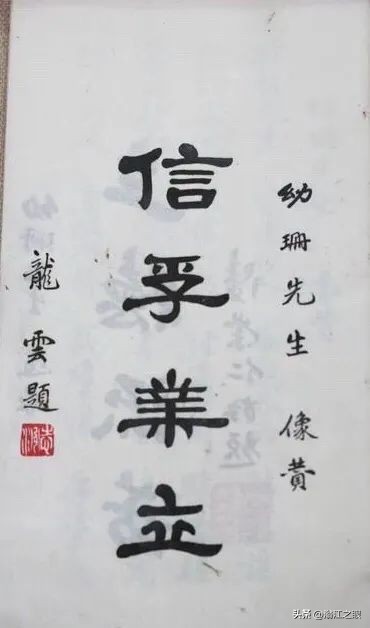 幼珊先生 像贊
信孚業立
龍雲題
头条 @瀚江之眼